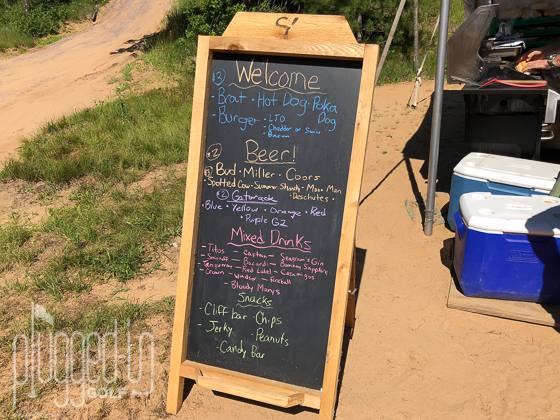 ③ Welcome
- Brat · Hot Dog · Polka Dog
- Burger - LTO
- Cheddar or Swiss
- Bacon
② Beer!
③ Bud · Miller · Coors
· Spotted Cow · Summer Shandy · Moon Man
· Deschutes
② Gatorade
· Blue · Yellow · Orange · Red
· Purple G2
Mixed Drinks
- Titos - Captain - Seagram's Gin
- Smirnoff - Bacardi - Bombay Sapphire
- Red Label - Casamigos
- Crown - Windsor - Fireball
- Bloody Marys
Snacks
- Cliff bar · Chips
- Jerky · Peanuts
- Candy Bar
plugged in
GOLF